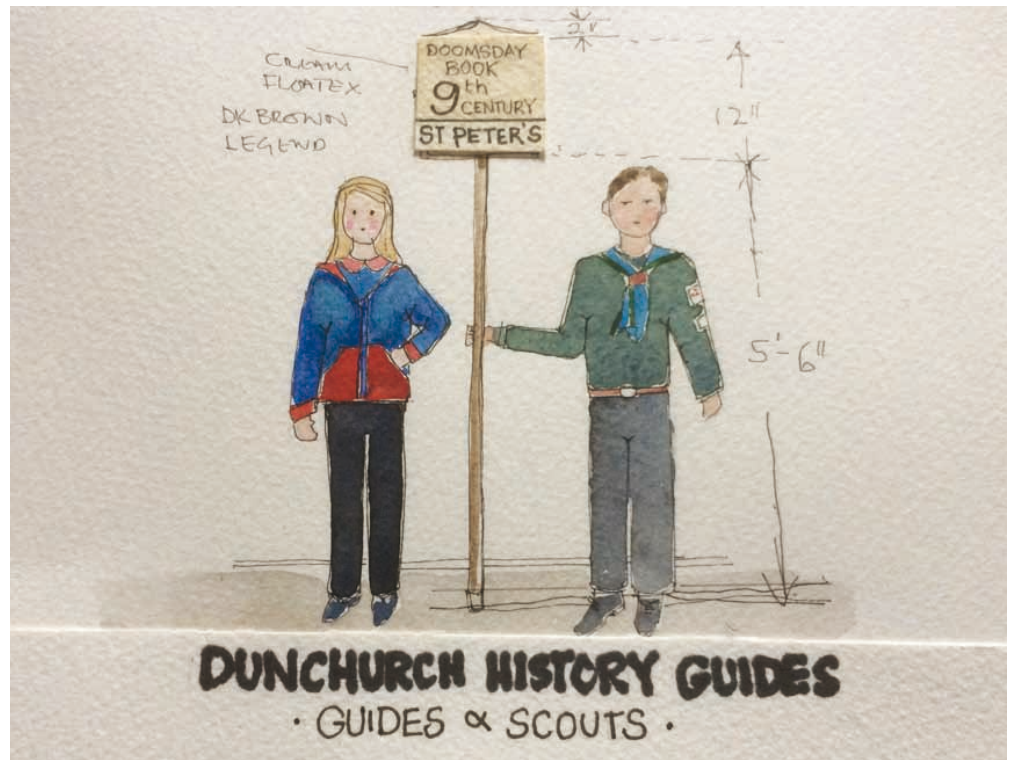 2"
CREAM
FLOATEX
DK BROWN
LEGEND
DOOMSDAY
BOOK
9th
CENTURY
ST PETER'S
12"
5'-6"
DUNCHURCH HISTORY GUIDES
· GUIDES & SCOUTS ·